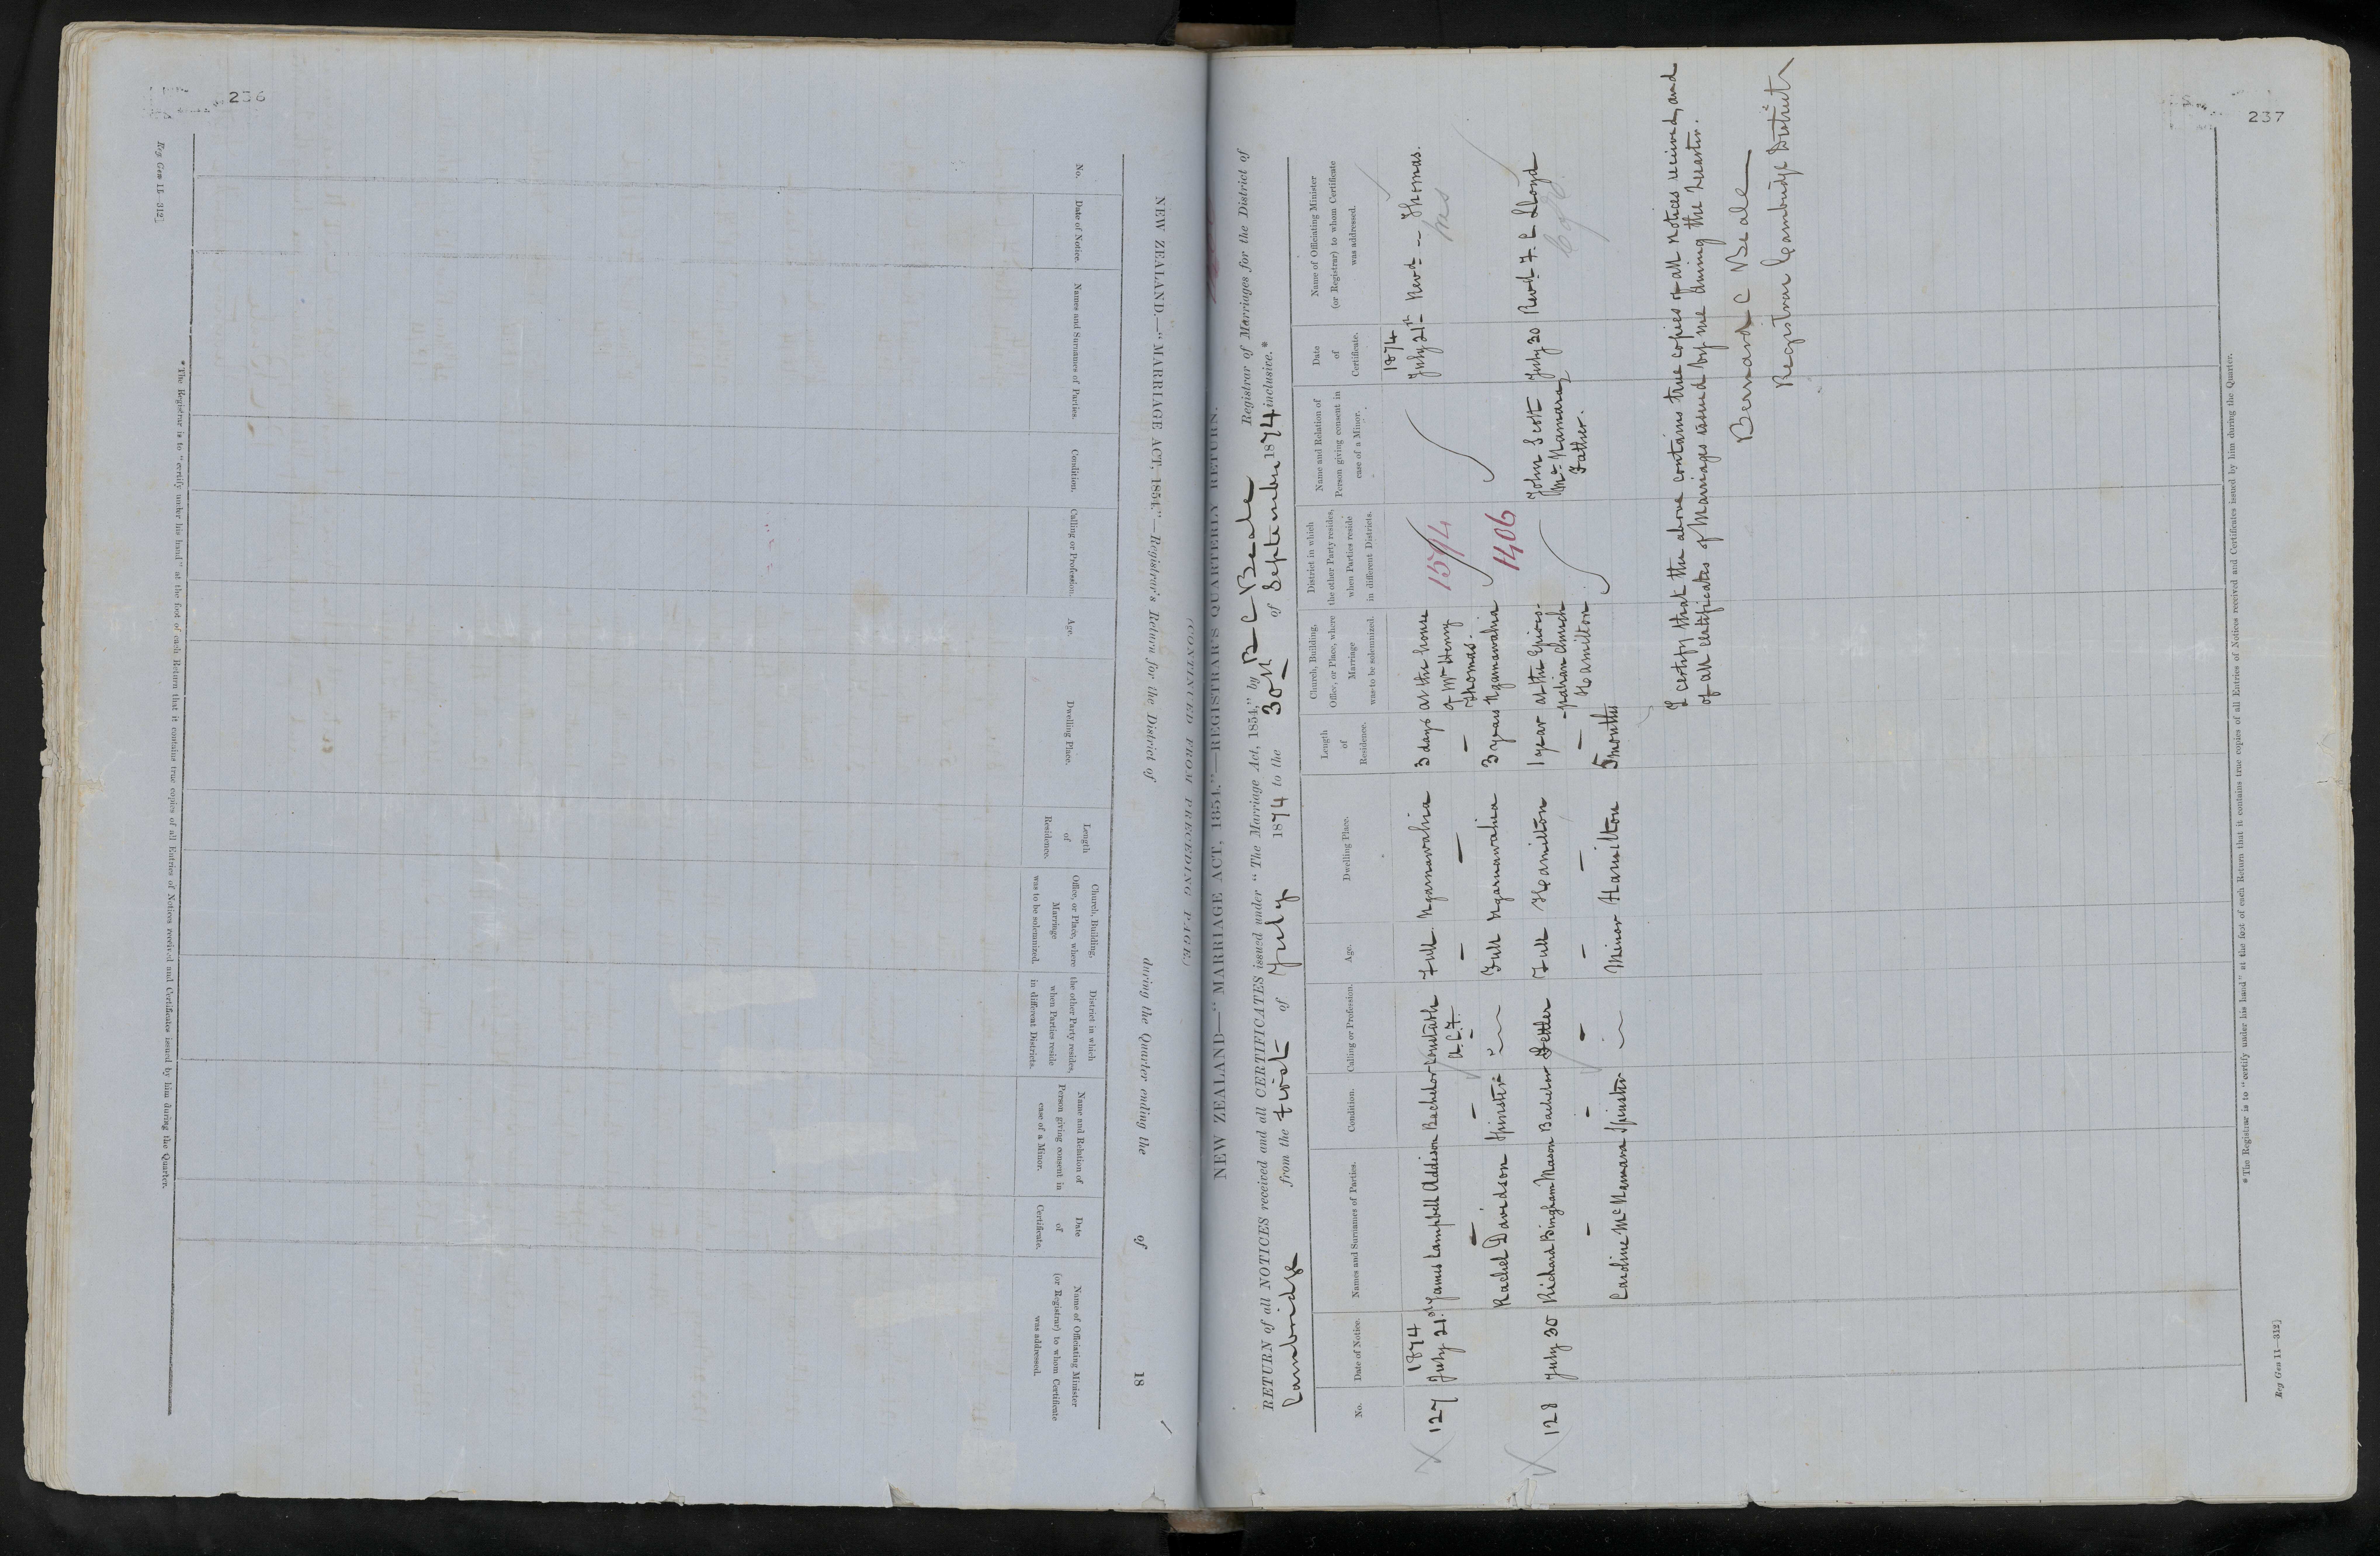 236
Reg Gen 11—312]
NEW ZEALAND.—"MARRIAGE ACT, 1854."—Registrar's Return for the District of during the Quarter ending the of 18
(CONTINUED FROM PRECEDING PAGE.)
No.
Date of Notice.
Names and Surnames of Parties.
Condition.
Calling or Profession.
Age.
Dwelling Place.
Length
of
Residence.
Church, Building,
Office, or Place, where
Marriage
was to be solemnized.
District in which
the other Party resides,
when Parties reside
in different Districts.
Name and Relation of
Person giving consent in
case of a Minor.
Date
of
Certificate.
Name of Officiating Minister
(or Registrar) to whom Certificate
was addressed.
* The Registrar is to "certify under his hand" at the foot of each Return that it contains true copies of all Entries of Notices received and Certificates issued by him during the Quarter.
237
NEW ZEALAND—"MARRIAGE ACT, 1854."—REGISTRAR'S QUARTERLY RETURN.
RETURN of all NOTICES received and all CERTIFICATES issued under "The Marriage Act, 1854," by B C Beale Registrar of Marriages for the District of
Cambridge from the first of July 1874 to the 30th of September 1874 inclusive.*
No.
Date of Notice.
Names and Surnames of Parties.
Condition.
Calling or Profession.
Age.
Dwelling Place.
Length
of
Residence.
Church, Building,
Office, or Place, where
Marriage
was to be solemnized.
District in which
the other Party resides,
when Parties reside
in different Districts.
Name and Relation of
Person giving consent in
case of a Minor.
Date
of
Certificate.
Name of Officiating Minister
(or Registrar) to whom Certificate
was addressed.
1874 1874
127 July 21st James Campbell Addison Bachelor Constable Full Ngaruawahia 3 days at the house 1574 July 21st Revd — Thomas.
A.C.F. of Mr Henry
Thomas.
Rachel Davidson Spinster Full Ngaruawahia 3 years Ngaruawahia
1406
128 July 30 Richard Bingham Mason Bachelor Settler Full Hamilton 1 year at the Episco- John Scott July 30 Revd F. L Lloyd
-palian church McNamara,
Hamilton Father.
Caroline McNamara Spinster Minor Hamilton 5 months
I certify that the above contains true copies of all notices received, and
of all certificates of Marriages issued by me during the Quarter.
Bernard C Beale
Registrar Cambridge District
* The Registrar is to "certify under his hand" at the foot of each Return that it contains true copies of all Entries of Notices received and Certificates issued by him during the Quarter.
Reg Gen 11—312]